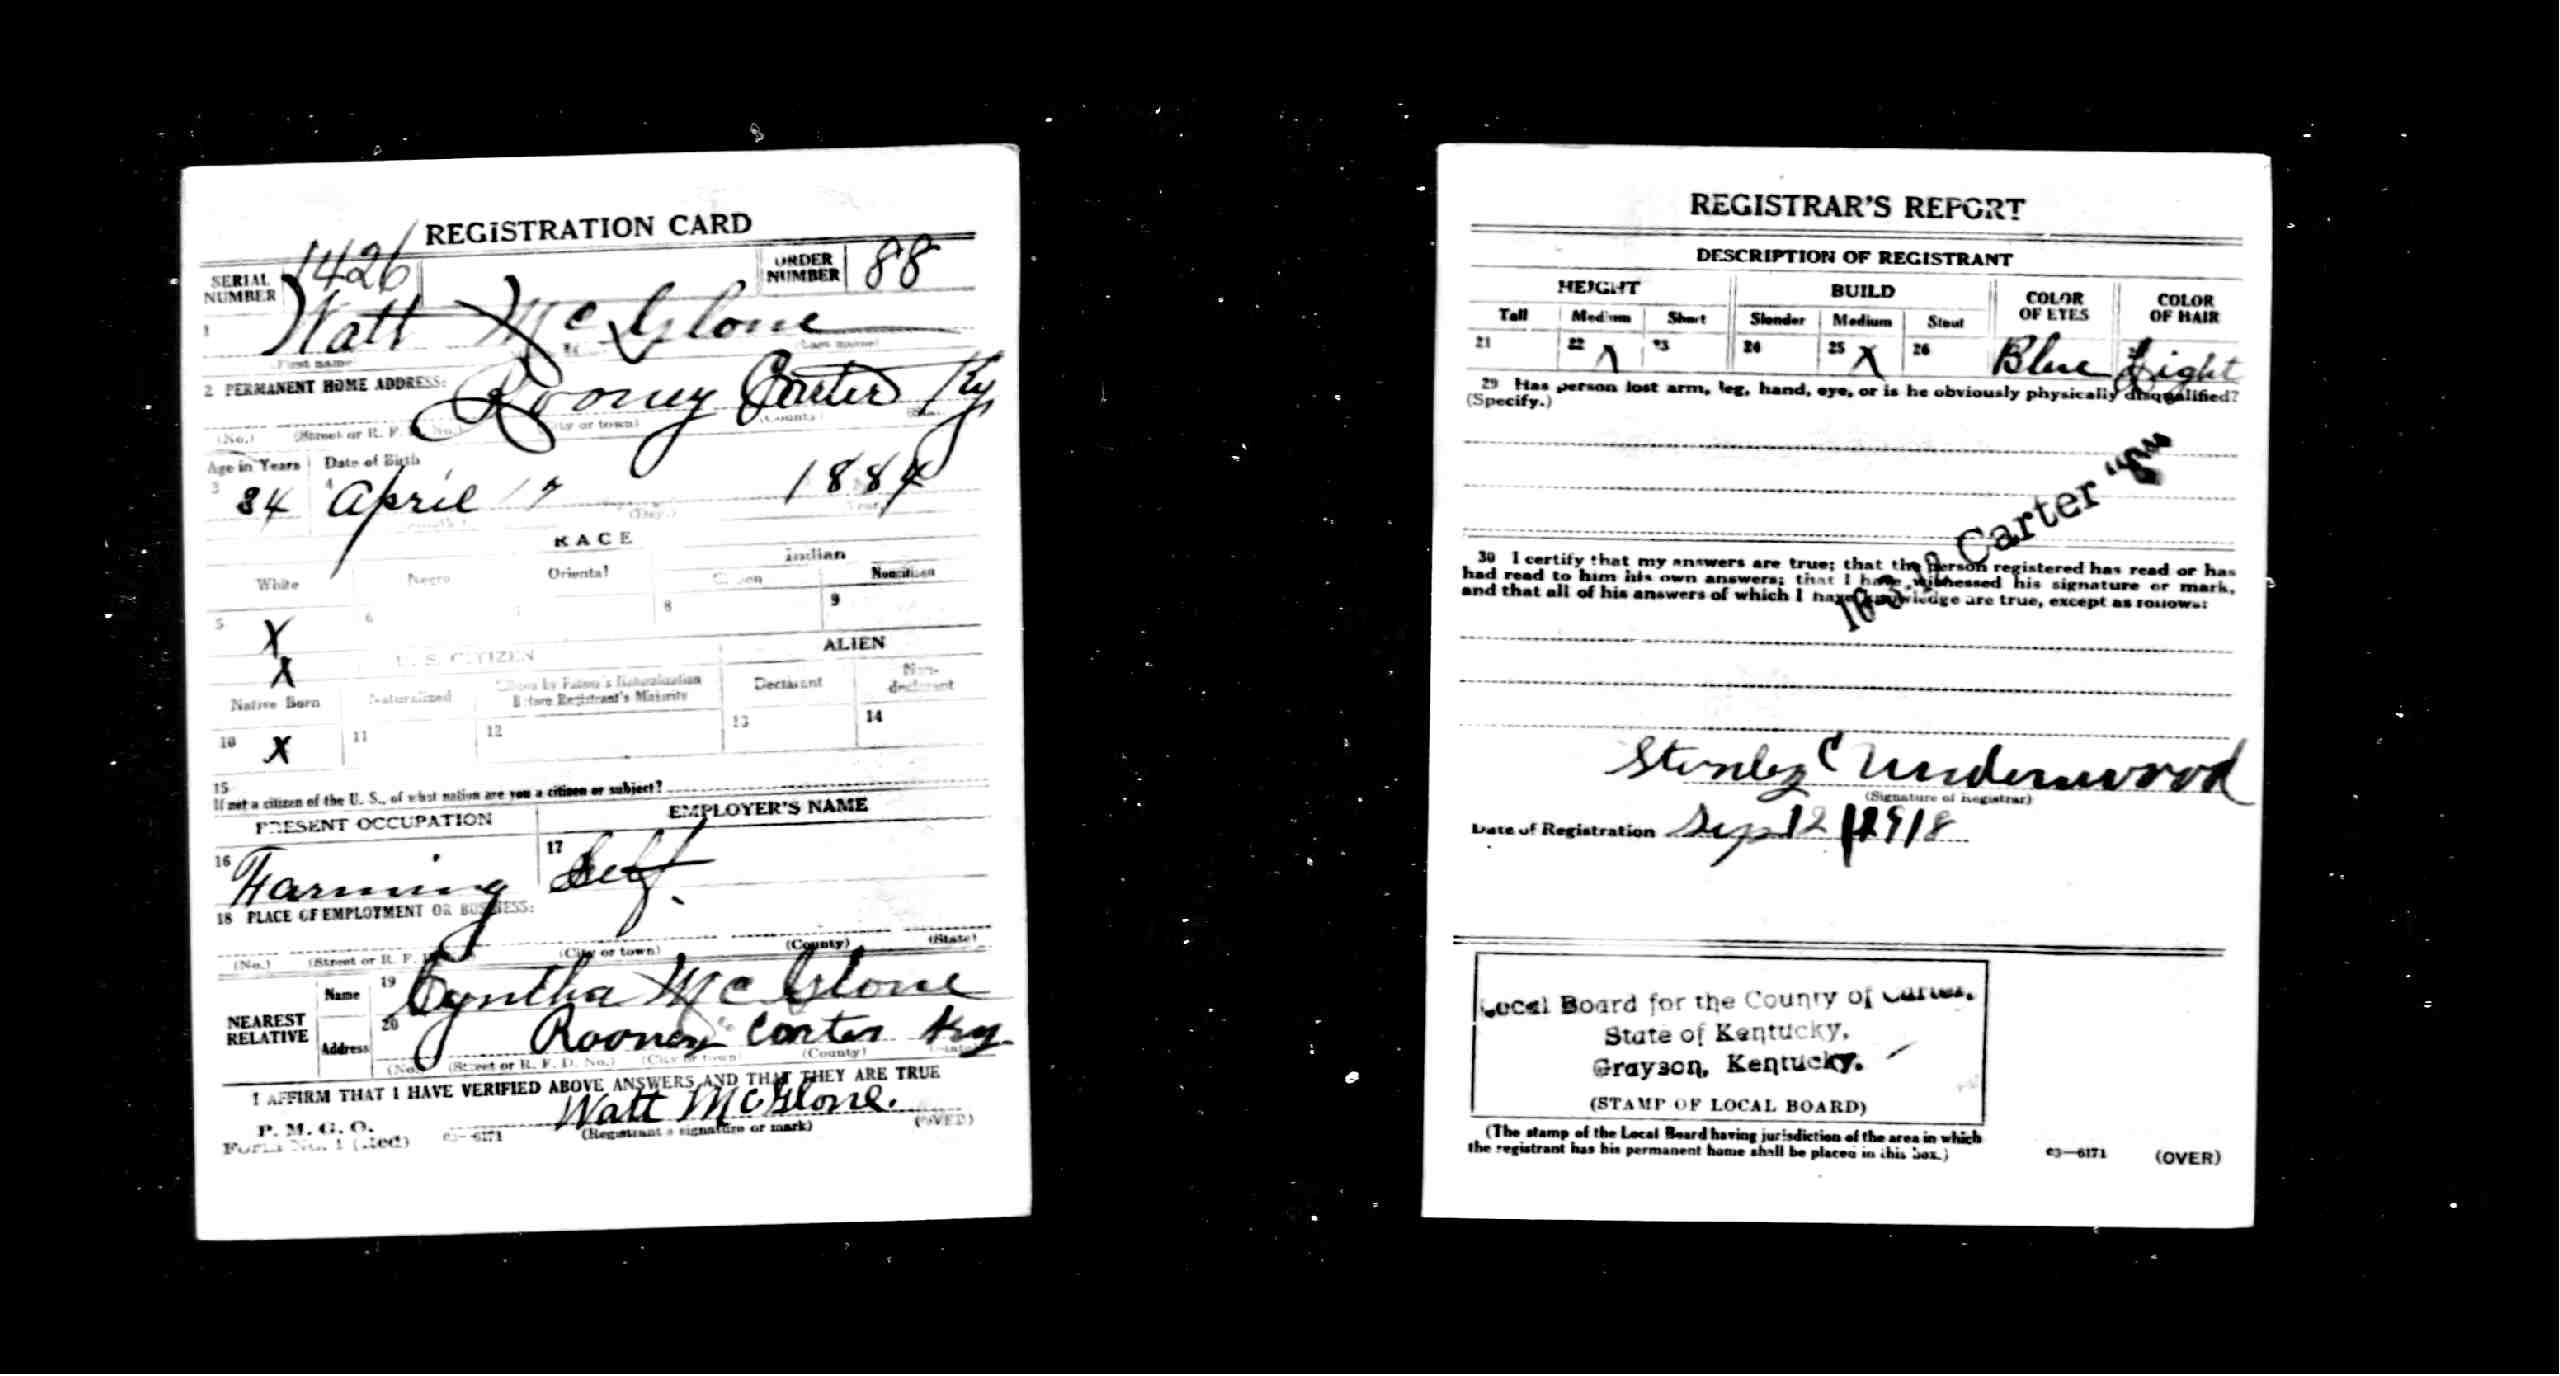 REGISTRATION CARD
SERIAL NUMBER 1426 ORDER NUMBER 88
1 Watt Mc Glone
(First name) (Last name)
2 PERMANENT HOME ADDRESS: Rooney Carter Ky
(No.) (Street or R. F. D. No.) (City or town) (County)
Age in Years Date of Birth
3 34 4 April 17 1884
(Day.) Year
RACE
White Negro Oriental Indian
Citizen Noncitizen
5 X 6 7 8 9
X U. S. CITIZEN ALIEN
Native Born Naturalized Citizen by Father's Naturalization Before Registrant's Majority Declarant Non-declarant
10 X 11 12 13 14
15
If not a citizen of the U. S., of what nation are you a citizen or subject?
PRESENT OCCUPATION EMPLOYER'S NAME
16 Farming 17 Self
18 PLACE OF EMPLOYMENT OR BUSINESS:
(No.) (Street or R. F. D. (City or town) (County) (State)
NEAREST RELATIVE Name 19 Cyntha Mc Glone
Address 20 Rooney Carter Ky
(No.) (Street or R. F. D. No.) (City or town) (County) (State)
I AFFIRM THAT I HAVE VERIFIED ABOVE ANSWERS AND THAT THEY ARE TRUE
P. M. G. O.
Form No. 1 (Red) 03—6171 Watt McGlone.
(Registrant's signature or mark) (OVER)
REGISTRAR'S REPORT
DESCRIPTION OF REGISTRANT
HEIGHT BUILD COLOR OF EYES COLOR OF HAIR
Tall Medium Short Slender Medium Stout
21 22 X 23 24 25 X 26 Blue Light
29 Has person lost arm, leg, hand, eye, or is he obviously physically disqualified?
(Specify.)
Carter
30 I certify that my answers are true; that the person registered has read or has
had read to him his own answers; that I have witnessed his signature or mark,
and that all of his answers of which I have knowledge are true, except as follows:
Stanley C Underwood
(Signature of Registrar)
Date of Registration Sep 12 1918
Local Board for the County of Carter,
State of Kentucky,
Grayson, Kentucky.
(STAMP OF LOCAL BOARD)
(The stamp of the Local Board having jurisdiction of the area in which
the registrant has his permanent home shall be placed in this box.)
03—6171 (OVER)